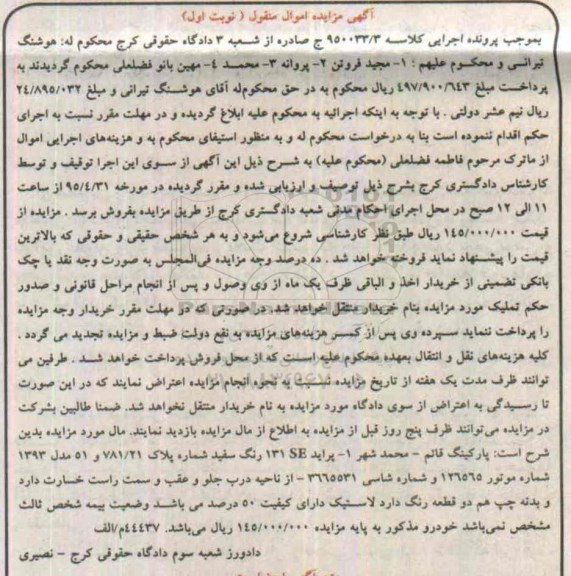 آگهی مزایده اموال منقول ( نوبت اول)
بموجب پرونده اجرایی کلاسه ۹۵۰۰۳۳/۳ ج صادره از شعبه ۳ دادگاه حقوقی کرج محکوم له: هوشنگ
تیرانی و محکوم علیهم : ۱- مجید فروتن ۲- پروانه ۳- محمد ۴- مهین بانو فضلعلی محکوم گردیدند به
پرداخت مبلغ ۴۹۷/۹۰۰/۶۴۳ ریال محکوم به در حق محکوم‌له آقای هوشنگ تیرانی و مبلغ ۲۴/۸۹۵/۰۳۲
ریال نیم عشر دولتی . با توجه به اینکه اجرائیه به محکوم علیه ابلاغ گردیده و در مهلت مقرر نسبت به اجرای
حکم اقدام ننموده است بنا به درخواست محکوم له و به منظور استیفای محکوم به و هزینه‌های اجرایی اموال
از ماترک مرحوم فاطمه فضلعلی (محکوم علیه) به شرح ذیل این آگهی از سوی این اجرا توقیف و توسط
کارشناس دادگستری کرج بشرح ذیل توصیف و ارزیابی شده و مقرر گردیده در مورخه ۹۵/۴/۳۱ از ساعت
۱۱ الی ۱۲ صبح در محل اجرای احکام مدنی شعبه دادگستری کرج از طریق مزایده بفروش برسد . مزایده از
قیمت ۱۴۵/۰۰۰/۰۰۰ ریال طبق نظر کارشناسی شروع می‌شود و به هر شخص حقیقی و حقوقی که بالاترین
قیمت را پیشنهاد نماید فروخته خواهد شد . ده درصد وجه مزایده فی‌المجلس به صورت وجه نقد یا چک
بانکی تضمینی از خریدار اخذ و الباقی ظرف یک ماه از وی وصول و پس از انجام مراحل قانونی و صدور
حکم تملیک مورد مزایده بنام خریدار منتقل خواهد شد. در صورتی که در مهلت مقرر خریدار وجه مزایده
را پرداخت ننماید سپرده وی پس از کسر هزینه‌های مزایده به نفع دولت ضبط و مزایده تجدید می گردد .
کلیه هزینه‌های نقل و انتقال بعهده محکوم علیه است که از محل فروش پرداخت خواهد شد . طرفین می
توانند ظرف مدت یک هفته از تاریخ مزایده نسبت به نحوه انجام مزایده اعتراض نمایند که در این صورت
تا رسیدگی به اعتراض از سوی دادگاه مورد مزایده به نام خریدار منتقل نخواهد شد. ضمنا طالبین بشرکت
در مزایده می‌توانند ظرف پنج روز قبل از مزایده به اطلاع از مال مزایده بازدید نمایند. مال مورد مزایده بدین
شرح است: پارکینگ قائم - محمد شهر ۱- پراید SE ۱۳۱ رنگ سفید شماره پلاک ۷۸۱/۲۱ و ۵۱ مدل ۱۳۹۳
شماره موتور ۱۲۶۵۶۵ و شماره شاسی ۳۶۶۵۵۳۱ - از ناحیه درب جلو و عقب و سمت راست خسارت دارد
و بدنه چپ هم دو قطعه رنگ دارد لاستیک دارای کیفیت ۵۰ درصد می باشد وضعیت بیمه شخص ثالث
مشخص نمی‌باشد خودرو مذکور به پایه مزایده ۱۴۵/۰۰۰/۰۰۰ ریال می‌باشد. ۴۴۴۳۷/م/الف
دادورز شعبه سوم دادگاه حقوقی کرج - نصیری